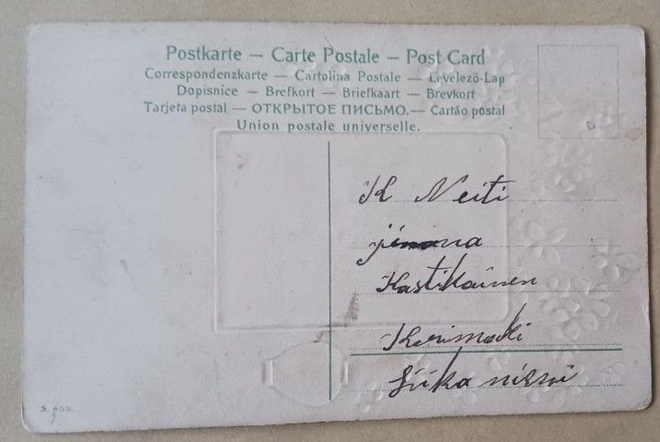 Postkarte — Carte Postale — Post Card
Correspondenzkarte — Cartolina Postale — Levelező-Lap
Dopisnice — Brefkort — Briefkaart — Brevkort
Tarjeta postal — ОТКРЫТОЕ ПИСЬМО. — Cartão postal
Union postale universelle.
K Neiti
Kastikainen
Kerimäki